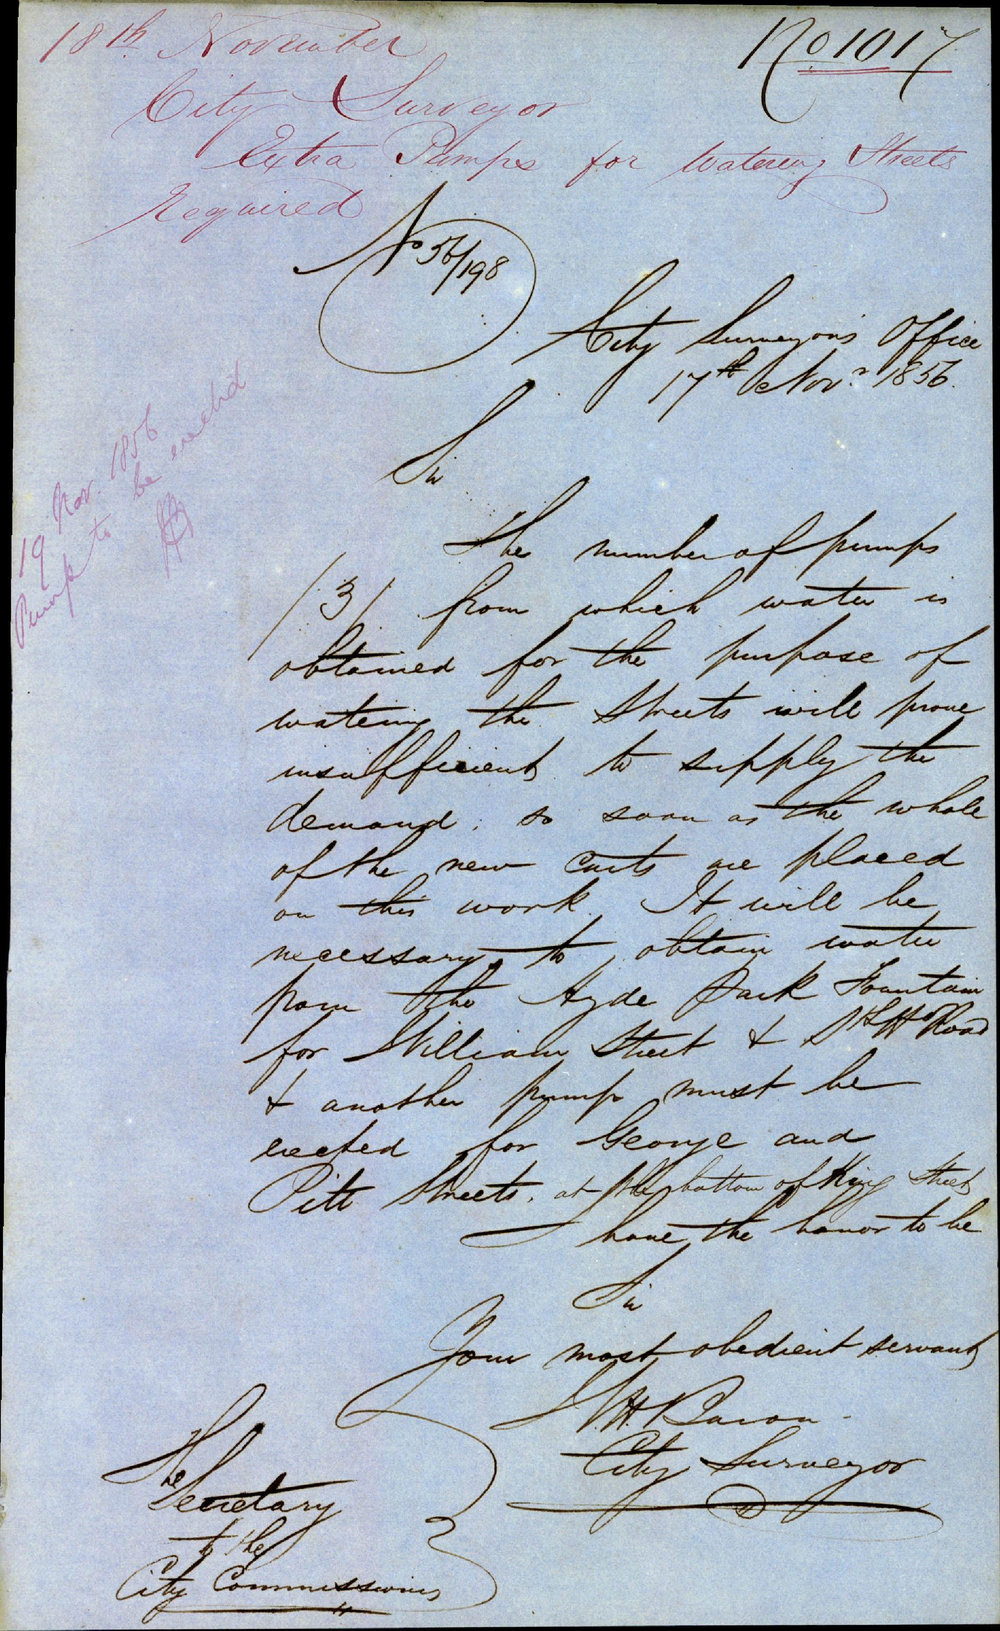 18th November
No 1017
City Surveyor
Extra Pumps for Watering Streets
Required
No 56/198
City Surveyor's Office
17th Novr 1856.
Sir
19 Nov. 1856
Pump to be erected
The number of pumps
/3/ from which water is
obtained for the purpose of
watering the Streets will prove
insufficient to supply the
demand, so soon as the whole
of the new carts are placed
on this work. It will be
necessary to obtain water
from the Hyde Park Fountain
for William Street & S. H. Road
& another pump must be
erected for George and
Pitt Streets. at the bottom of King Street
I have the honor to be
Sir
Your most obedient servant
City Surveyor
The
Secretary
to the
City Commissioners